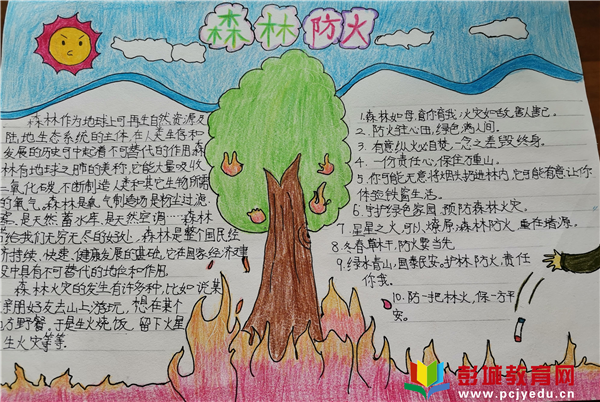 森林防火
森林作为地球上可再生自然资源及
陆地生态系统的主体,在人类生存和
发展的历史中起着不可替代的作用森
林有地球之肺的美称,它能大量吸收
二氧化碳,不断制造人类和其它生物所需
的氧气。森林是氧气制造场是粉尘过滤
是天然蓄水库,是天然空调……森林
给我们无穷无尽的好处,森林是整个国民经
济持续、快速、健康发展的基础,它在国家经济建
设中具有不可替代的地位和作用。
森林火灾的发生有许多种,比如说某
亲朋好友去山上游玩,想在某个
方野餐,于是生火烧饭,留下火星
生火灾等等。
1.森林如母,育你育我,火灾如敌,害人害己。
2、防火驻心田,绿色满人间。
3、有意纵火必自焚,一念之差毁终身。
4、一份责任心,保住万重山。
5、你可能无意将烟头扔进林内,它可能有意让你
体验铁窗生活。
6、呵护绿色家园,预防森林火灾。
7、星星之火,可以燎原,森林防火,重在墙源。
8、冬春草木干,防火要当先。
9、绿水青山,国泰民安。护林防火,责任
你我。
10、防一把林火,保一方平
安。
彭城教育网
www.pcjyedu.cn